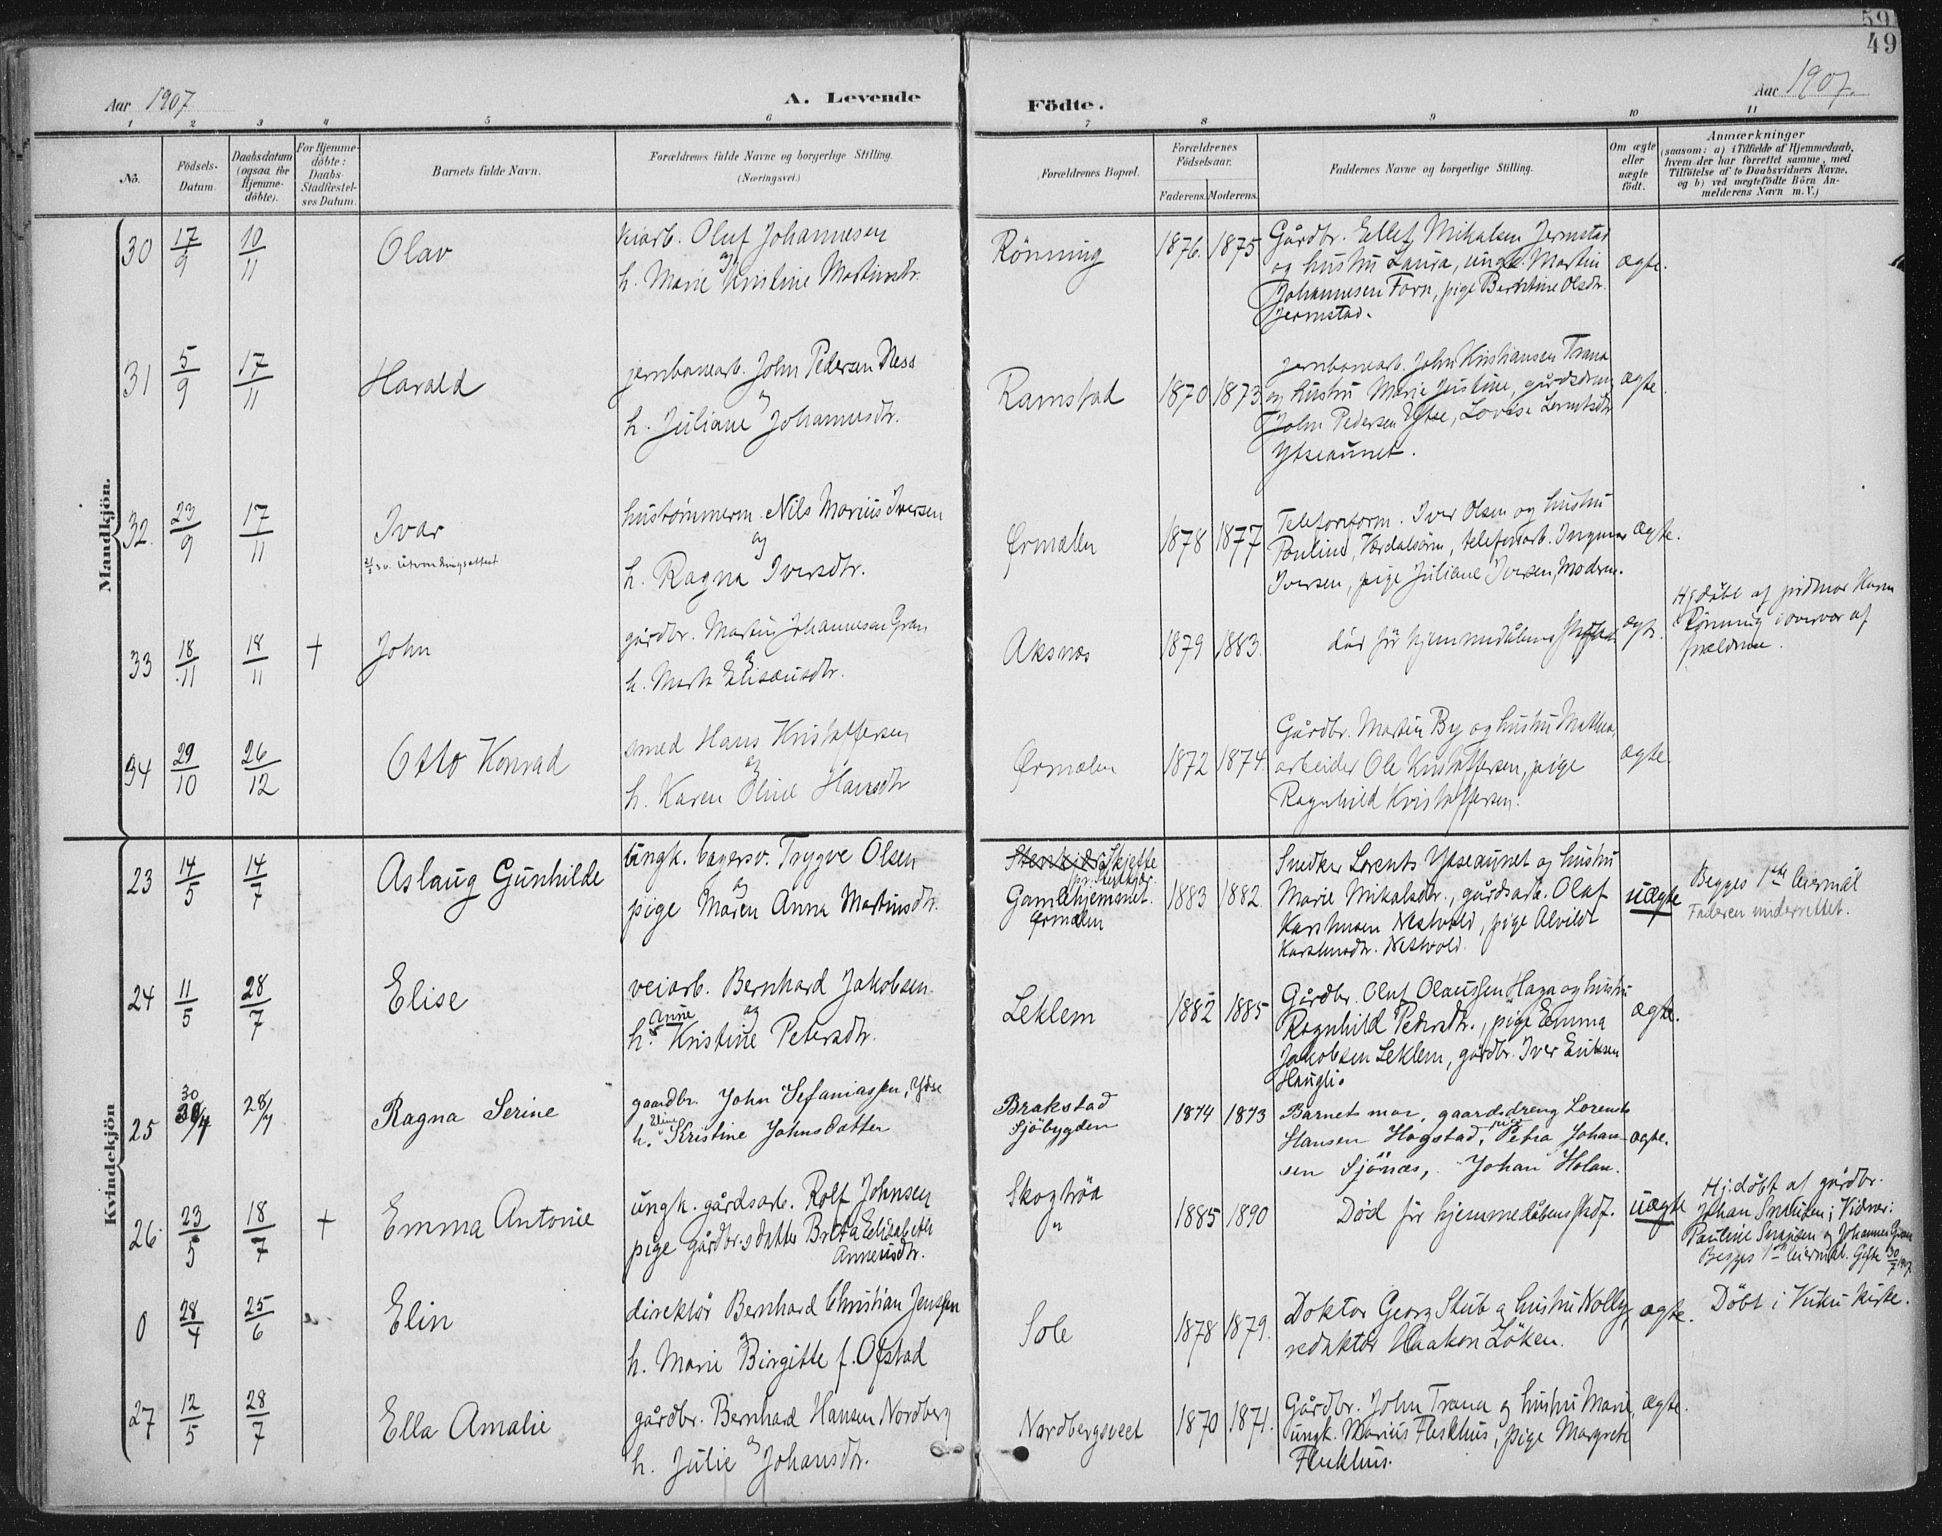 59
49
Aar 1907
A. Levende
Födte.
Aar 1907.
1 2 3 4 5 6 7 8 9 10 11
No.
Födsels-
Datum.
Daabsdatum
(ogsaa for
Hjemme-
döbte).
For Hjemme-
döbte:
Daabs
Stadfæstel-
ses Datum.
Barnets fulde Navn.
Forældrenes fulde Navne og borgerlige Stilling.
(Næringsvei.)
Forældrenes Bopæl.
Forældrenes
Födselsaar.
Faderens. Moderens.
Faddernes Navne og borgerlige Stilling.
Om ægte
eller
uægte
födt.
Anmærkninger
(saasom: a) i Tilfælde af Hjemmedaab,
hvem der har forrettet samme, med
Tilföielse af to Daabsvidners Navne,
og b) ved uægtefödte Börn An-
melderens Navn m. V.)
Mandkjön.
30 17/9 10/11 Olav
veiarb. Oluf Johannesen
og
h. Marie Kristine Martinsdtr.
Rönning 1876. 1875
Gårdbr. Ellef Mikalsen Jermstad
og hustru Laura, ungk. Martin
Johannesen Forn, pige Berntine Olsdtr.
Jermstad.
ægte.
31 5/9 17/11 Harald
jernbanearb. John Pedersen Ness
og
h. Juliane Johannesdtr.
Ramstad 1870 1873
jernbanearb. John Kristiansen Trana
og hustru Marie Justine, gårdsdreng
John Pedersen Ytse, Lovise Lorntsdtr
Ytseaunet.
ægte.
32. 23/9 17/11 Ivar
utvandringsattest
hustömmerm. Nils Marius Iversen
og
h. Ragna Iversdtr.
Örmelen 1878 1877
Telefonform. Iver Olsen og hustru
Pauline, Værdalsören, telefonarb. Ingvar
Iversen, pige Juliane Iversen, Moderen.
ægte.
33 18/11 18/11 † John
gårdbr. Martin Johannesen Gran
og
h. Marta Elisæusdtr.
Aksnes 1879 1883.
död för hjemmedåbens stadf.
ægte.
Hj.döbt af jordmor Karen
Rönning i overvær af
forældrene.
34 29/10 26/12 Otto Konrad
smed Hans Kristoffersen
og
h. Karen Oline Hansdtr
Örmelen 1872 1874.
Gårdbr. Martin By og hustru Mathea,
arbeider Ole Kristoffersen, pige
Ragnhild Kristoffersen.
ægte.
Kvindekjön
23 14/5 14/7 Aslaug Gunhilde
Ungk. bagersv. Trygve Olsen
og
pige Maren Anna Martinsdtr.
Stenkjær Skjefte
pr. Stenkjær
Gamlehjemmet.
Örmelen
1883 1882.
Snedker Lorents Ytseaunet og hustru
Marie Mikalsdtr., gårdsarb. Olaf
Karstensen Nestvold, pige Alvilde
Karstensdtr. Nestvold.
uægte
Begges 1ste leiermål
Faderen underrettet.
24 11/5 28/7 Elise
veiarb. Bernhard Jakobsen
og
h. Anne Kristine Petersdtr.
Leklem 1882 1885
Gårdbr. Oluf Olaussen Haga og hustru
Ragnhild Pedersdtr., pige Emma
Jakobsen Leklem, gårdbr. Iver Eriksen
Hauglis
ægte.
25 30/4 28/7 Ragna Serine
gaardbr. John Sefaniassen, Ydse
h. Eline Kristine Johnsdatter
Brakstad
Sjöbygden
1874 1873
Barnets mor, gaardsdreng Lorents
Hansen Hogstad, pige Petra Johan-
sen Sjönæs, Johan Holan.
ægte.
26. 23/5 18/7 † Emma Antonie
ungk. gårdsarb. Rolf Johnsen
pige gårdbr.s datter Berta Elisabeth
Anneusdtr.
Skogtröa
"
1885 1890
Död för hjemmedåbens stadf.
uægte
Hj.döbt af gårdbr.
Johan Snelisen; Vidner:
Pauline og Johannes
Begges 1ste leiermål. Gifte 30/7 1907.
0 28/4 25/6 Elin
direktör Bernhard Christian Jenssen
og
h. Marie Birgitte f. Ofstad
Sole 1878 1879.
Doktor Georg Skub o hustru Nolly,
redaktör Haakon Löken.
ægte.
Döbt i Vuku kirke.
27 12/5 28/7 Ella Amalie
gårdbr. Bernhard Hansen Nordberg
og
h. Julie Johansdtr.
Nordbergsveet 1870 1871.
Gårdbr. John Trana og hustru Marie,
ungk. Marius Fleskhus, pige Margrete
Fleskhus.
ægte.